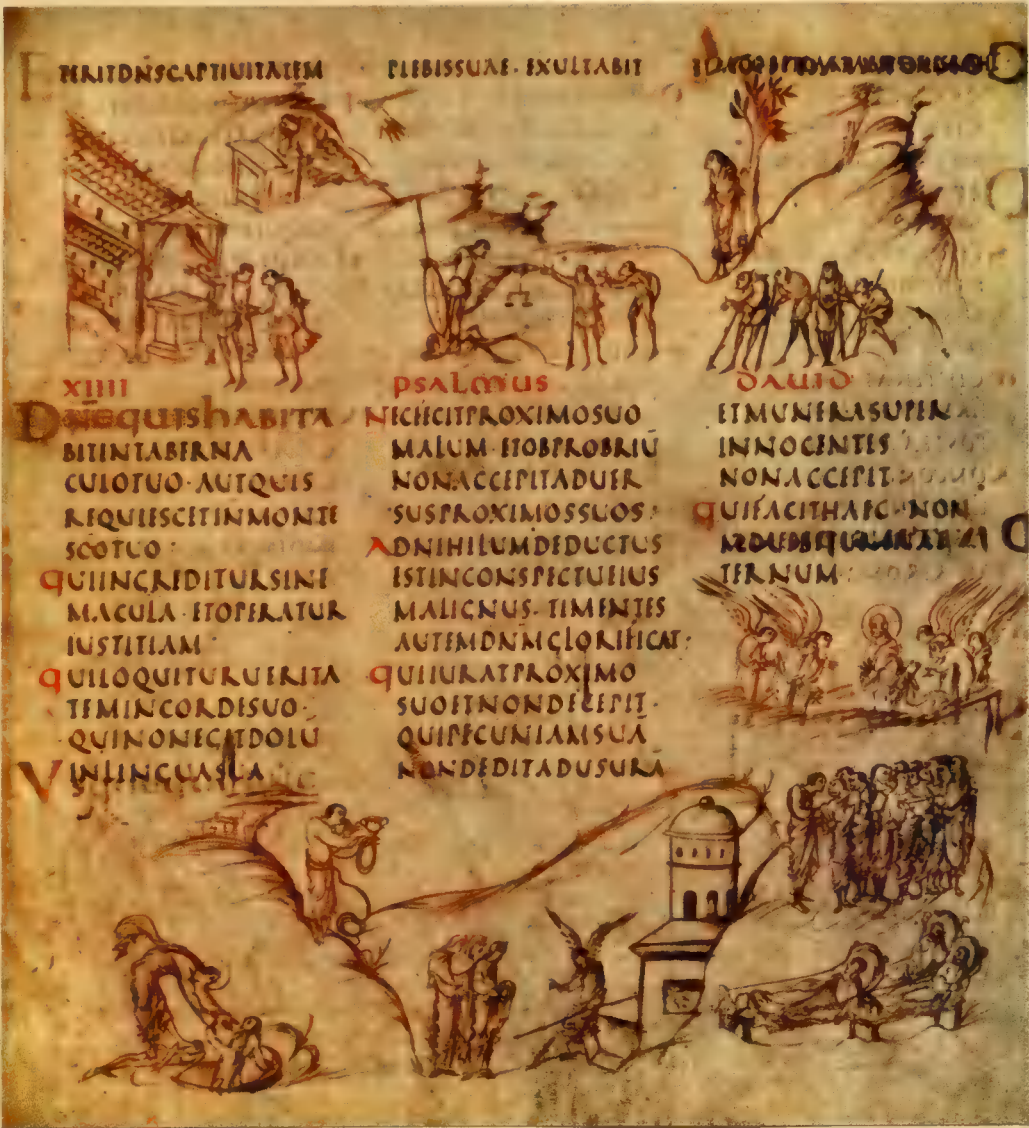 TERITDNSCAPTIUITATEM PLEBISSUAE · EXULTABIT
XIIII PSALMUS DAUID
DNEQUISHABITA
BITINTABERNA
CULOTUO · AUTQUIS
REQUIESCETINMONTE
SCOTUO
QUIINGREDITURSINE
MACULA · ETOPERATUR
IUSTITIAM
QUILOQUITURUERITA
TEMINCORDESUO ·
QUINONEGITDOLU
INLINGUASUA
NECFECITPROXIMOSUO
MALUM · ETOBPROBRIU
NONACCEPITADUER
SUSPROXIMOSSUOS :
ADNIHILUMDEDUCTUS
ESTINCONSPECTUEIUS
MALIGNUS · TIMENTES
AUTEMDNMGLORIFICAT :
QUIIURATPROXIMO
SUOETNONDECEPIT ·
QUIPECUNIAMSUA
NONDEDITADUSURA
ETMUNERASUPER
INNOCENTES
NONACCEPIT ·
QUIFACITHAEC · NON
TERNUM :